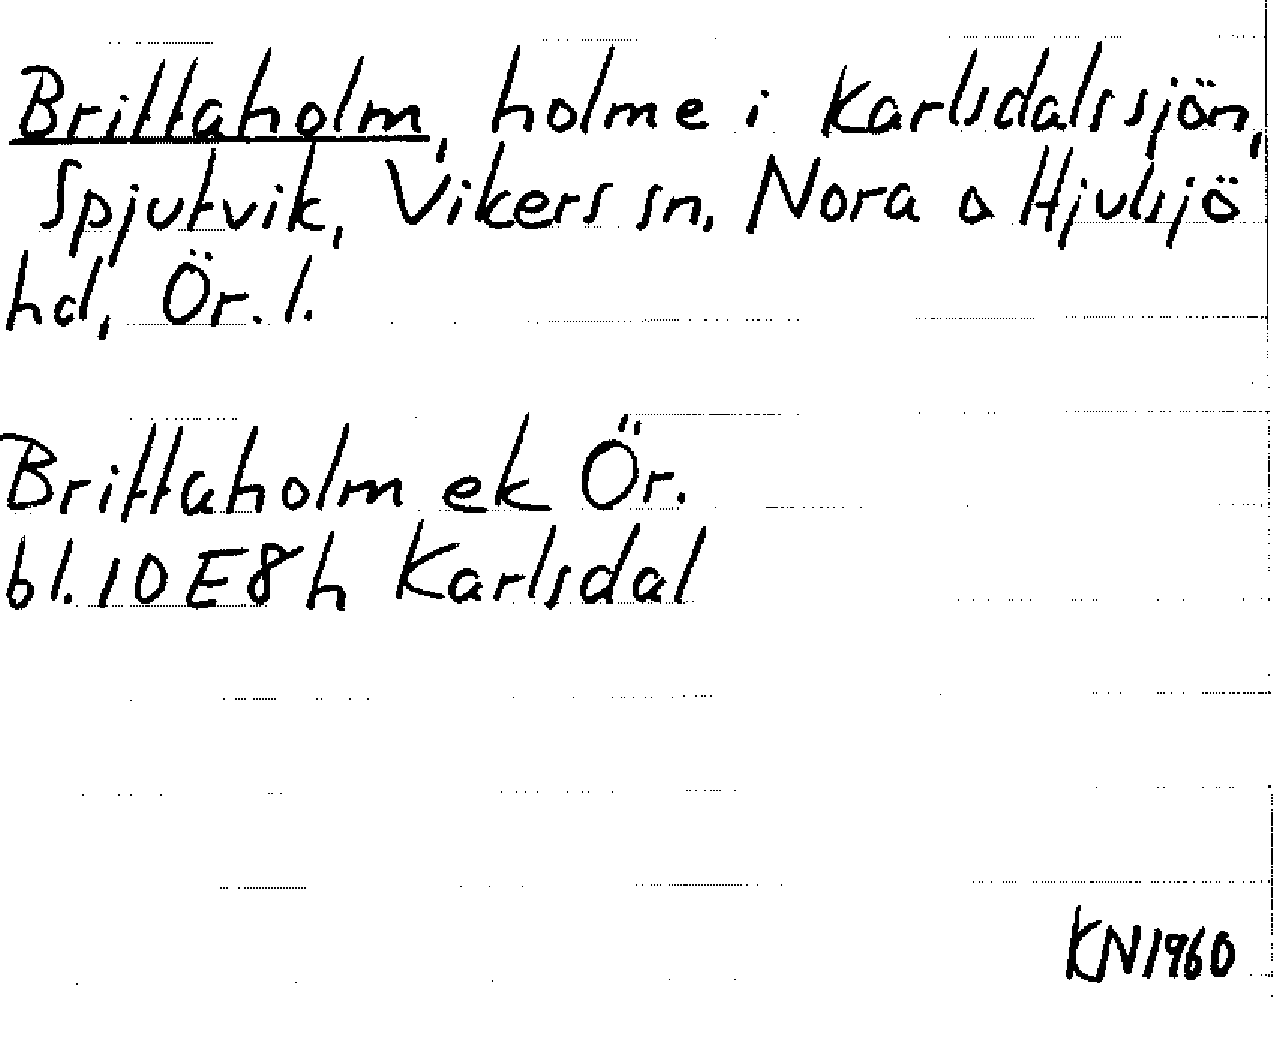 Brittaholm, holme i Karlsdalssjön,
Spjutvik, Vikers sn, Nora o Hjulsjö
hd, Ör. l.
Brittaholm ek Ör.
bl. 10 E8h Karlsdal
KN1960